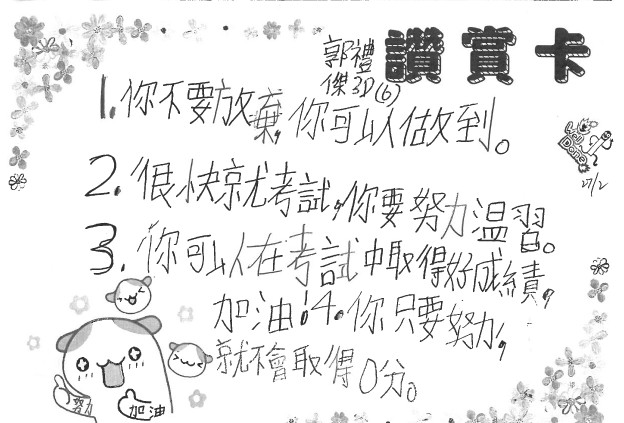 讚賞卡
郭禮
傑3D(6)
1.你不要放棄,你可以做到。
2.很快就考試,你要努力溫習。
3.你可以在考試中取得好成績,
加油!4.你只要努力,
就不會取得0分。
Well Done
27/2
努力 加油